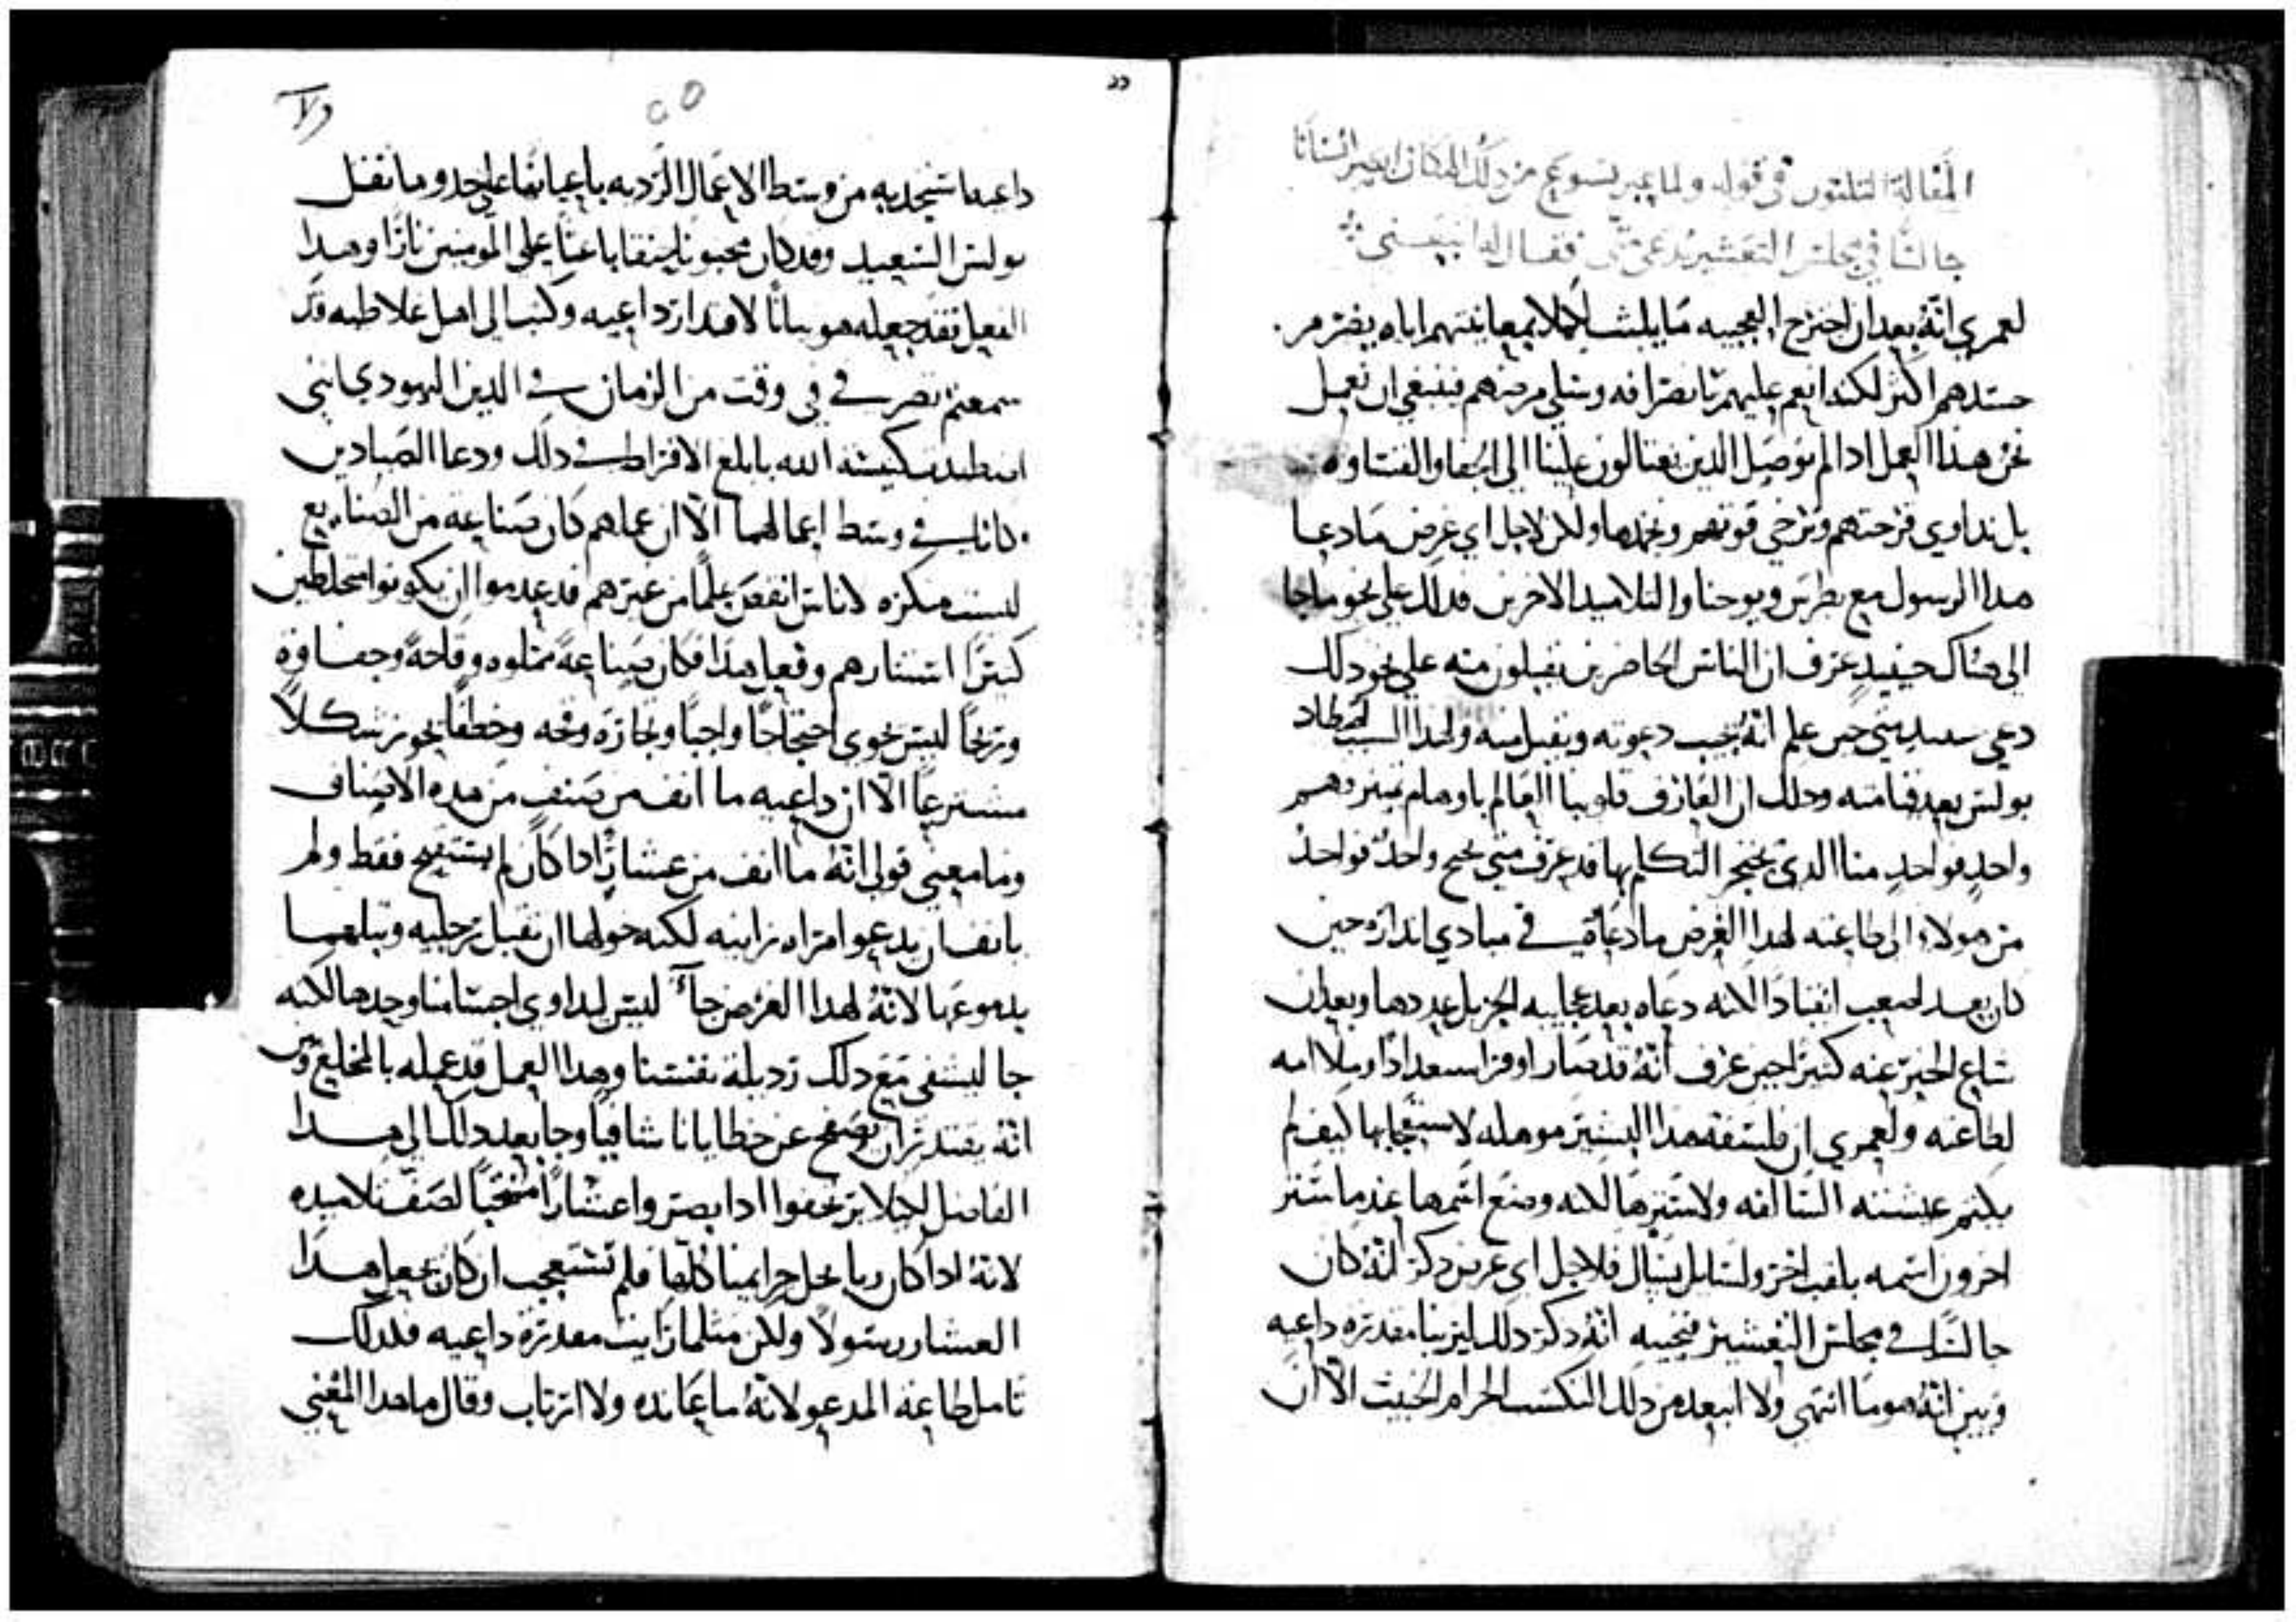 المقالة الثلثون في قوله ولما عبر يسوع من ذلك المكان ابصر انسانا
جالسًا في مجلس التعشير يدعى متى فقال له اتبعني
لعمري انّهُ بعد ان اجترح العجيبه مَا يلبث لكيلا بمعاينتهم اياه يضرم
حسدهم اكثر لكنه انعم عليهم بانصرافه وسلي مرضهم فينبغي ان نعمل
نحن هذا العمل اذا لم نوصَل الذين يغتالون علينا الى الجفا والقساوه
بل نداوي قرحتهم ونرخي قوتهم ونخمدها ولكن لاجل اي غرض مَا دعا
هذا الرسول مع بطرس ويوحنا والتلاميد الاخرين فدلك على نحو ما جا
الى هناك حينيدٍ عرف ان الناس الحاضرين يقبلون منه على نحو ذلك
دعى متي حين علم انّهُ يجيب دعوته ويقبل منه ولهذا السبب اصطاد
بولس بعد قيامته وذلك ان العارف قلوبنا العالم باوهام ضميرهم
واحدٍ فواحدٍ منا الذي يحتجز التكلم بها قد عرف متي يجيح واحدٌ فواحدٌ
من هولاء الى طاعته لهذا الغرض ما دعاه في مبادي انداره حين
كان يعد اصعب انقيادًا لانه دعاه بعد عجايبه الجزيل عددها وبعد ان
شاع الخبر عنه كثيرًا حين عرف انّهُ قد صَار اوفر استعدادًا وملاامه
لطاعته ولعمري ان فلسفه هذا البشير موهله لاستعجابها كيف لم
يكتم عيشته السالفه ولا سترها لانه وضع اسمها عندما ستر
اخرون اسمه بلقب اخر ولسايل يسال فلاجل اي غرض ذكر انّهُ كان
جالسًا في مجلس التعشير فنجيبه انّهُ ذكر ذلك ليرينا مقدره داعيه
وبين انّهُ هو ما انتهى ولا ابتعد من ذلك المكسب الحرام الخبيث الّا ان
ولا
داعيه استجذبه من وسط الاعمال الرديه باعيانها على حد و ما نقل
بولس السعيد وقد كان مجنونًا حنقا باعثًا على المومنين نارًا وهذا
الفعل فقد جعله هو بيانًا لاقتدار داعيه وكتب الى اهل غلاطيه قد
سمعتم تصرفي في وقت من الزمان في الدين اليهودي انني
اضطهدت كنيسة الله بابلغ الافراط في ذلك ودعا الصيادين
كانا في وسط اعمالهما الّا ان عملهم كان صناعه من الصنايع
ليست منكره لاناس انقص علمًا من غيرهم قد عدموا ان يكونوا متخلطين
كثيرًا استشارهم وفعل هذا فكان صناعهً مملوه وقاحةً وجفاوه
وربحًا ليس يحوي احتجاجًا واجبًا وتجارَه وقحه وخطفًا يحوز شكلًا
مشترعًا الّا ان داعيه ما انف من صنفٍ من هذه الاصناف
وما معني قولى انّهُ ما انف من عشارٍ اذا كان لم يستقبح فقط ولم
يانف ان يدعو امراه زانيه لكنه خولها ان تقبل رجليه وتبلهما
بدموعَها لانّهُ لهذا الغرض جآءَ ليس ليداوي اجسامنا وحدها لكنه
جا ليشفي مَع ذلك رذيلة نفسنا وهذا العمل قد عمله بالمخلع وبين
انّهُ يقتدر ان يصفح عن خطايانا شافيًا وجا بعد ذلك الى هذا
الفاضل لكيلا يرتجفوا اذا ابصروا عشارًا منتخبًا لصَف تلاميده
لانّهُ اذا كان ربا يحل جرايمنا كلها فلم تستعجب ان كان يجعل هذا
العشار رسولًا ولكن مثلما رايت مقدرة داعيه فلذلك
تامل طاعة المدعو لانّهُ ما عَانده ولا ارتاب وقال ما هذا المعني